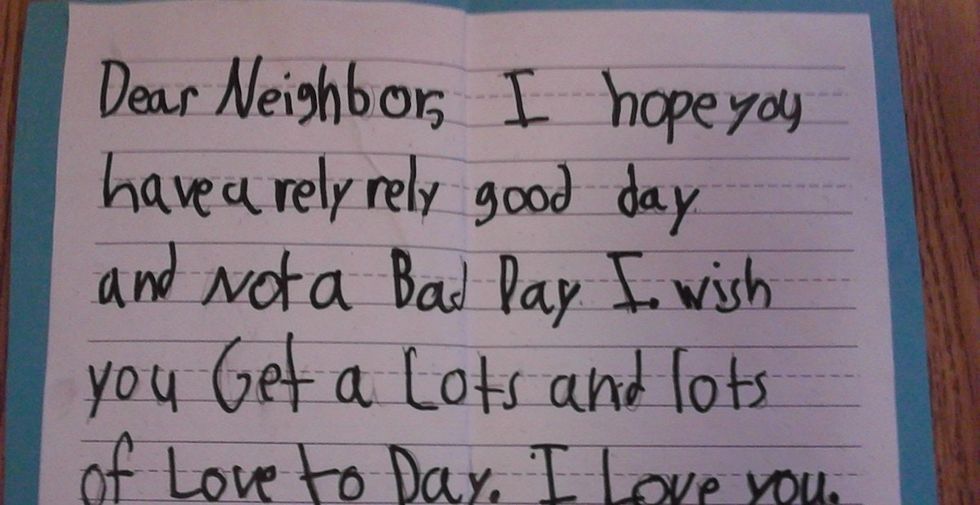 Dear Neighbors I hope you
have a rely rely good day
and Not a Bad Day I. wish
you Get a Lots and lots
of Love to Day. I Love you.